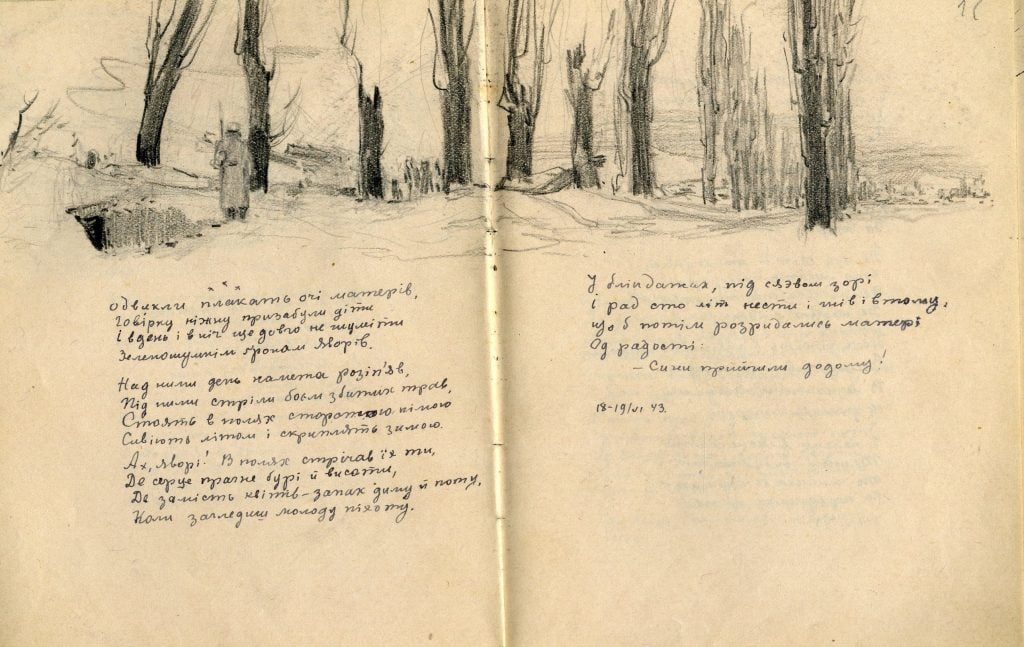 * * *
Одвикли плакать очі матерів,
Говірку ніжну призабули діти
І вдень і вніч ще довго не шуміти
Зеленошумнім кронам яворів.
Над ними день намета розіп'яв,
Під ними стріли боєм збитих трав,
Стоять в полях німою
Сивіють літом і скриплять зимою.
Ах, яворі! В полях стрічав їх ти,
Де серце прагне бурі й висоти,
Де замість квітів – запах диму й поту,
Коли загледиш молоду піхоту.
У бліндажах, під сяєвом зорі
І рад сто літ нести і гнів і втому,
Щоб потім розридались матері
Од радості:
– Сини прийшли додому!
18-19/VI 43.